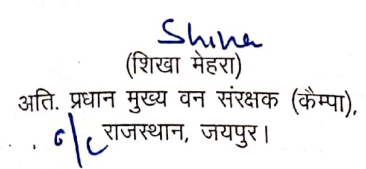 Shikha
(शिखा मेहरा)
अति. प्रधान मुख्य वन संरक्षक (कैम्पा),
o/c राजस्थान, जयपुर।